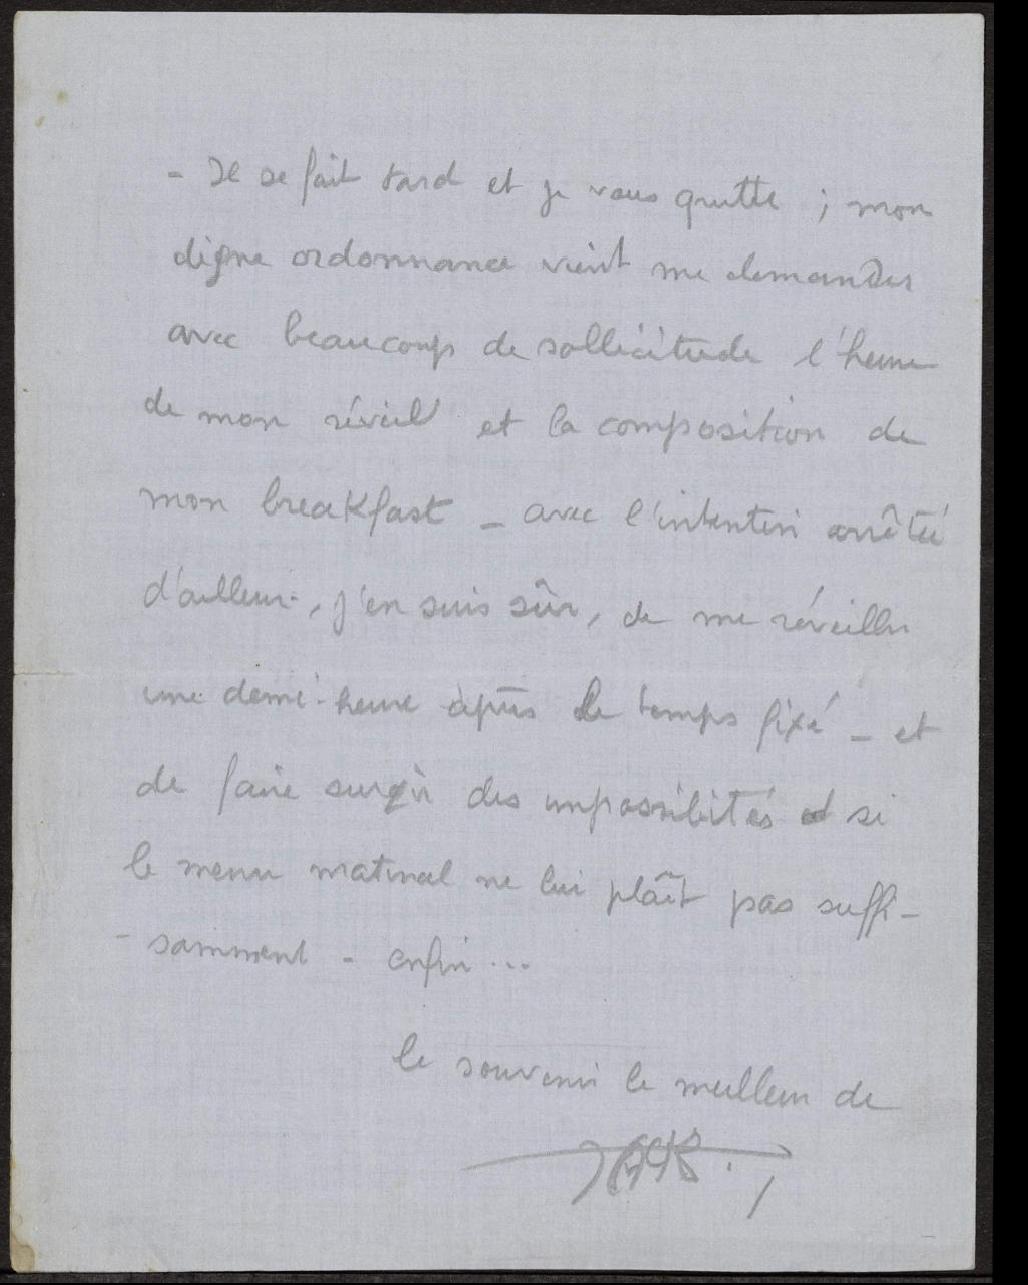 - Il se fait tard et je vous quitte ; mon
digne ordonnance vient me demander
avec beaucoup de sollicitude l'heure
de mon réveil et la composition de
mon breakfast - avec l'intention arrêtée
d'ailleurs, j'en suis sûr, de me réveiller
une demi-heure après le temps fixé - et
de faire surgir des impossibilités si
le menu matinal ne lui plaît pas suffi-
- samment - enfin ...
le souvenir le meilleur de